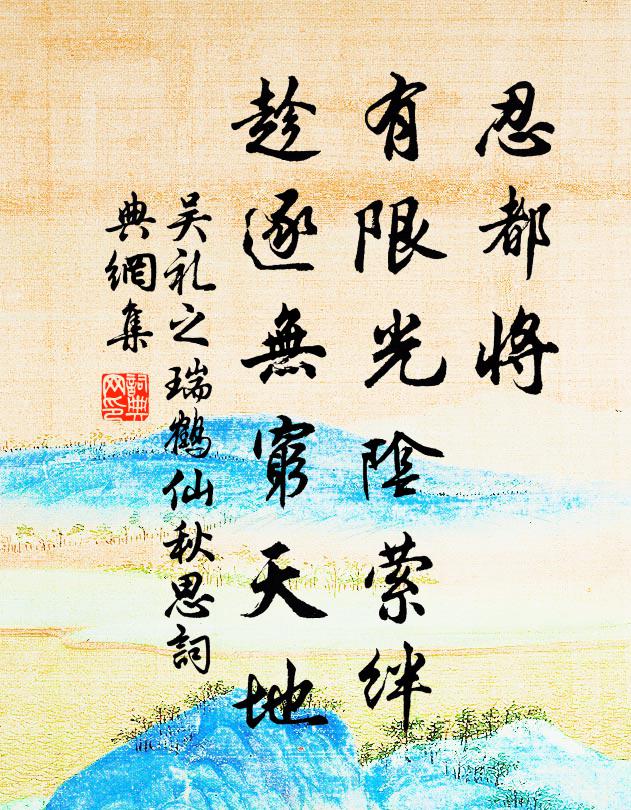 忍都將
有限光陰縈絆
趁逐無窮天地
吴礼之瑞鶴仙秋思詞
典網集
詞典
网印